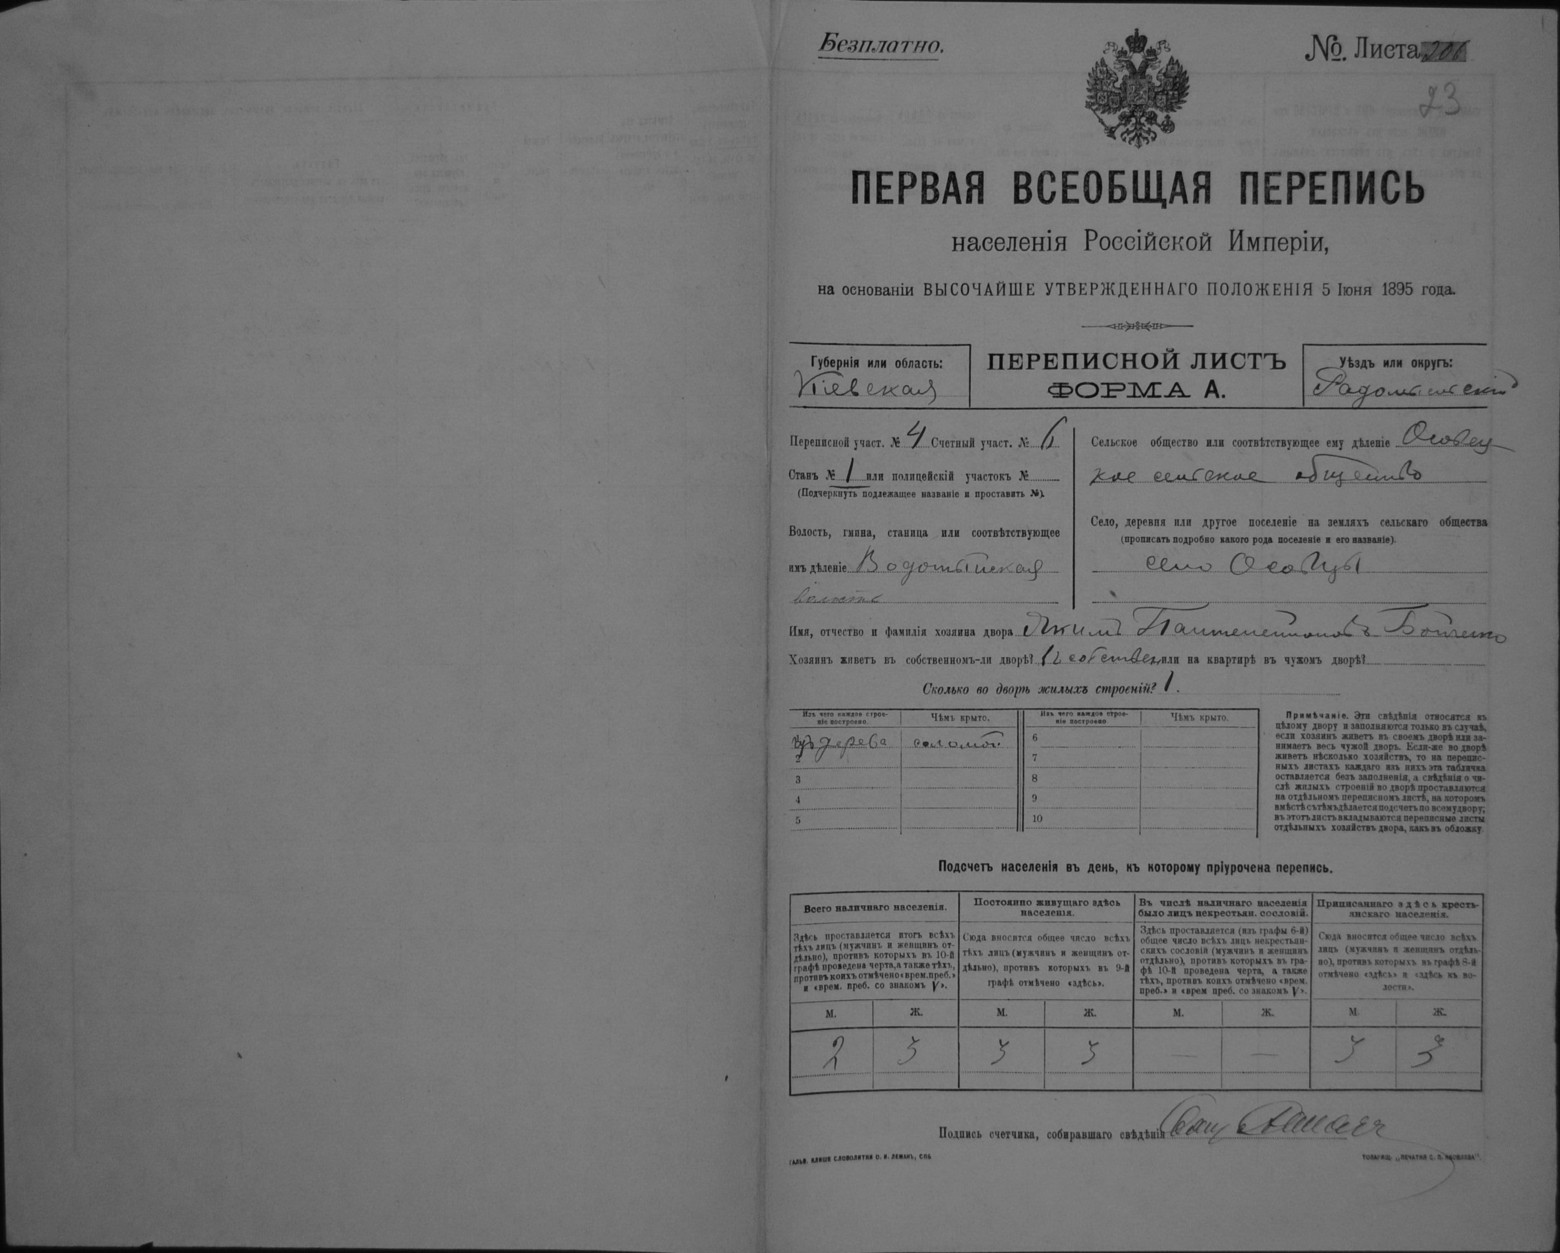 Безплатно.
№. Листа
23
ПЕРВАЯ ВСЕОБЩАЯ ПЕРЕПИСЬ
населенія Россійской Имперіи,
на основаніи ВЫСОЧАЙШЕ УТВЕРЖДЕННАГО ПОЛОЖЕНІЯ 5 Іюня 1895 года.
Губернія или область:
Кіевская
ПЕРЕПИСНОЙ ЛИСТЪ
ФОРМА А.
Уѣздъ или округъ:
Радомысльскій
Переписной участ. № 4 Счетный участ. № 6
Станъ № 1 или полицейскій участокъ №
(Подчеркнуть подлежащее названіе и проставить №).
Волость, гмина, станица или соотвѣтствующее
имъ дѣленіе Водотыйская
волость
Сельское общество или соотвѣтствующее ему дѣленіе Особец
кое сельское общество
Село, деревня или другое поселеніе на земляхъ сельскаго общества
(прописать подробно какого рода поселеніе и его названіе).
село Особцы
Имя, отчество и фамилія хозяина двора Якимъ Пантелеймоновъ Бойченко
Хозяинъ живетъ въ собственномъ-ли дворѣ? или на квартирѣ въ чужомъ дворѣ?
Сколько во дворѣ жилыхъ строеній? 1.
Изъ чего каждое строеніе построено. Чѣмъ крыто. Изъ чего каждое строеніе построено Чѣмъ крыто.
изъ дерева соломой 6
2 7
3 8
4 9
5 10
Примѣчаніе. Эти свѣдѣнія относятся къ
цѣлому двору и заполняются только въ случаѣ,
если хозяинъ живетъ въ своемъ дворѣ или за-
нимаетъ весь чужой дворъ. Если-же во дворѣ
живетъ нѣсколько хозяйствъ, то на перепис-
ныхъ листахъ каждаго изъ нихъ эта табличка
оставляется безъ заполненія, а свѣдѣнія о чи-
слѣ жилыхъ строеній во дворѣ проставляются
на отдѣльномъ переписномъ листѣ, на которомъ
вмѣстѣ съ тѣмъ дѣлается подсчетъ по всему двору;
въ этотъ листъ вкладываются переписные листы
отдѣльныхъ хозяйствъ двора, какъ въ обложку.
Подсчетъ населенія въ день, къ которому пріурочена перепись.
Всего наличнаго населенія.
Здѣсь проставляется итогъ всѣхъ
тѣхъ лицъ (мужчинъ и женщинъ от-
дѣльно), противъ которыхъ въ 10-й
графѣ проведена черта, а также тѣхъ,
противъ коихъ отмѣчено «врем. преб.»
и «врем. преб. со знакомъ V».
Постоянно живущаго здѣсь
населенія.
Сюда вносится общее число всѣхъ
тѣхъ лицъ (мужчинъ и женщинъ от-
дѣльно), противъ которыхъ въ 9-й
графѣ отмѣчено «здѣсь».
Въ числѣ наличнаго населенія
было лицъ некрестьян. сословій.
Здѣсь проставляется (изъ графы 6-й)
общее число всѣхъ лицъ некрестьян-
скихъ сословій (мужчинъ и женщинъ
отдѣльно), противъ которыхъ въ гра-
фѣ 10-й проведена черта, а также
тѣхъ, противъ коихъ отмѣчено «врем.
преб.» и «врем. преб. со знакомъ V».
Приписаннаго здѣсь кресть-
янскаго населенія.
Сюда вносится общее число всѣхъ
лицъ (мужчинъ и женщинъ отдѣль-
но), противъ которыхъ въ графѣ 8-й
отмѣчено «здѣсь» и «здѣсь въ во-
лости».
М. Ж. М. Ж. М. Ж. М. Ж.
2 3 3 3 — — 3 3
Подпись счетчика, собиравшаго свѣдѣнія
ГАЛЬВ. КЛИШЕ СЛОВОЛИТНИ О. И. ЛЕМАНЪ, СПБ
ТОВАРИЩ. „ПЕЧАТНЯ С. П. ЯКОВЛЕВА“